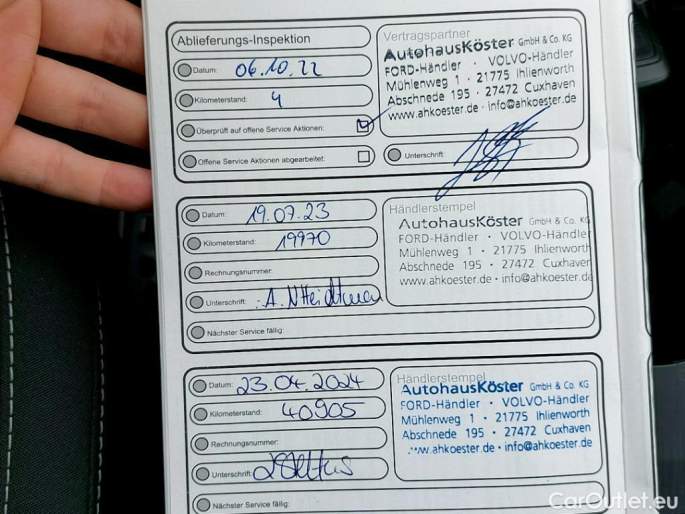 Ablieferungs-Inspektion
Datum: 06.10.22
Kilometerstand: 4
Überprüft auf offene Service Aktionen:
Offene Service Aktionen abgearbeitet:
Vertragspartner
AutohausKöster GmbH & Co. KG
FORD-Händler · VOLVO-Händler
Mühlenweg 1 · 21775 Ihlienworth
Abschnede 195 · 27472 Cuxhaven
www.ahkoester.de · info@ahkoester.de
Unterschrift:
Datum: 19.07.23
Kilometerstand: 19970
Rechnungsnummer:
Unterschrift:
Nächster Service fällig:
Händlerstempel
AutohausKöster GmbH & Co. KG
FORD-Händler · VOLVO-Händler
Mühlenweg 1 · 21775 Ihlienworth
Abschnede 195 · 27472 Cuxhaven
www.ahkoester.de · info@ahkoester.de
Datum: 23.04.2024
Kilometerstand: 40905
Rechnungsnummer:
Unterschrift:
Nächster Service fällig:
Händlerstempel
AutohausKöster GmbH & Co. KG
FORD-Händler · VOLVO-Händler
Mühlenweg 1 · 21775 Ihlienworth
Abschnede 195 · 27472 Cuxhaven
www.ahkoester.de · info@ahkoester.de
CarOutlet.eu